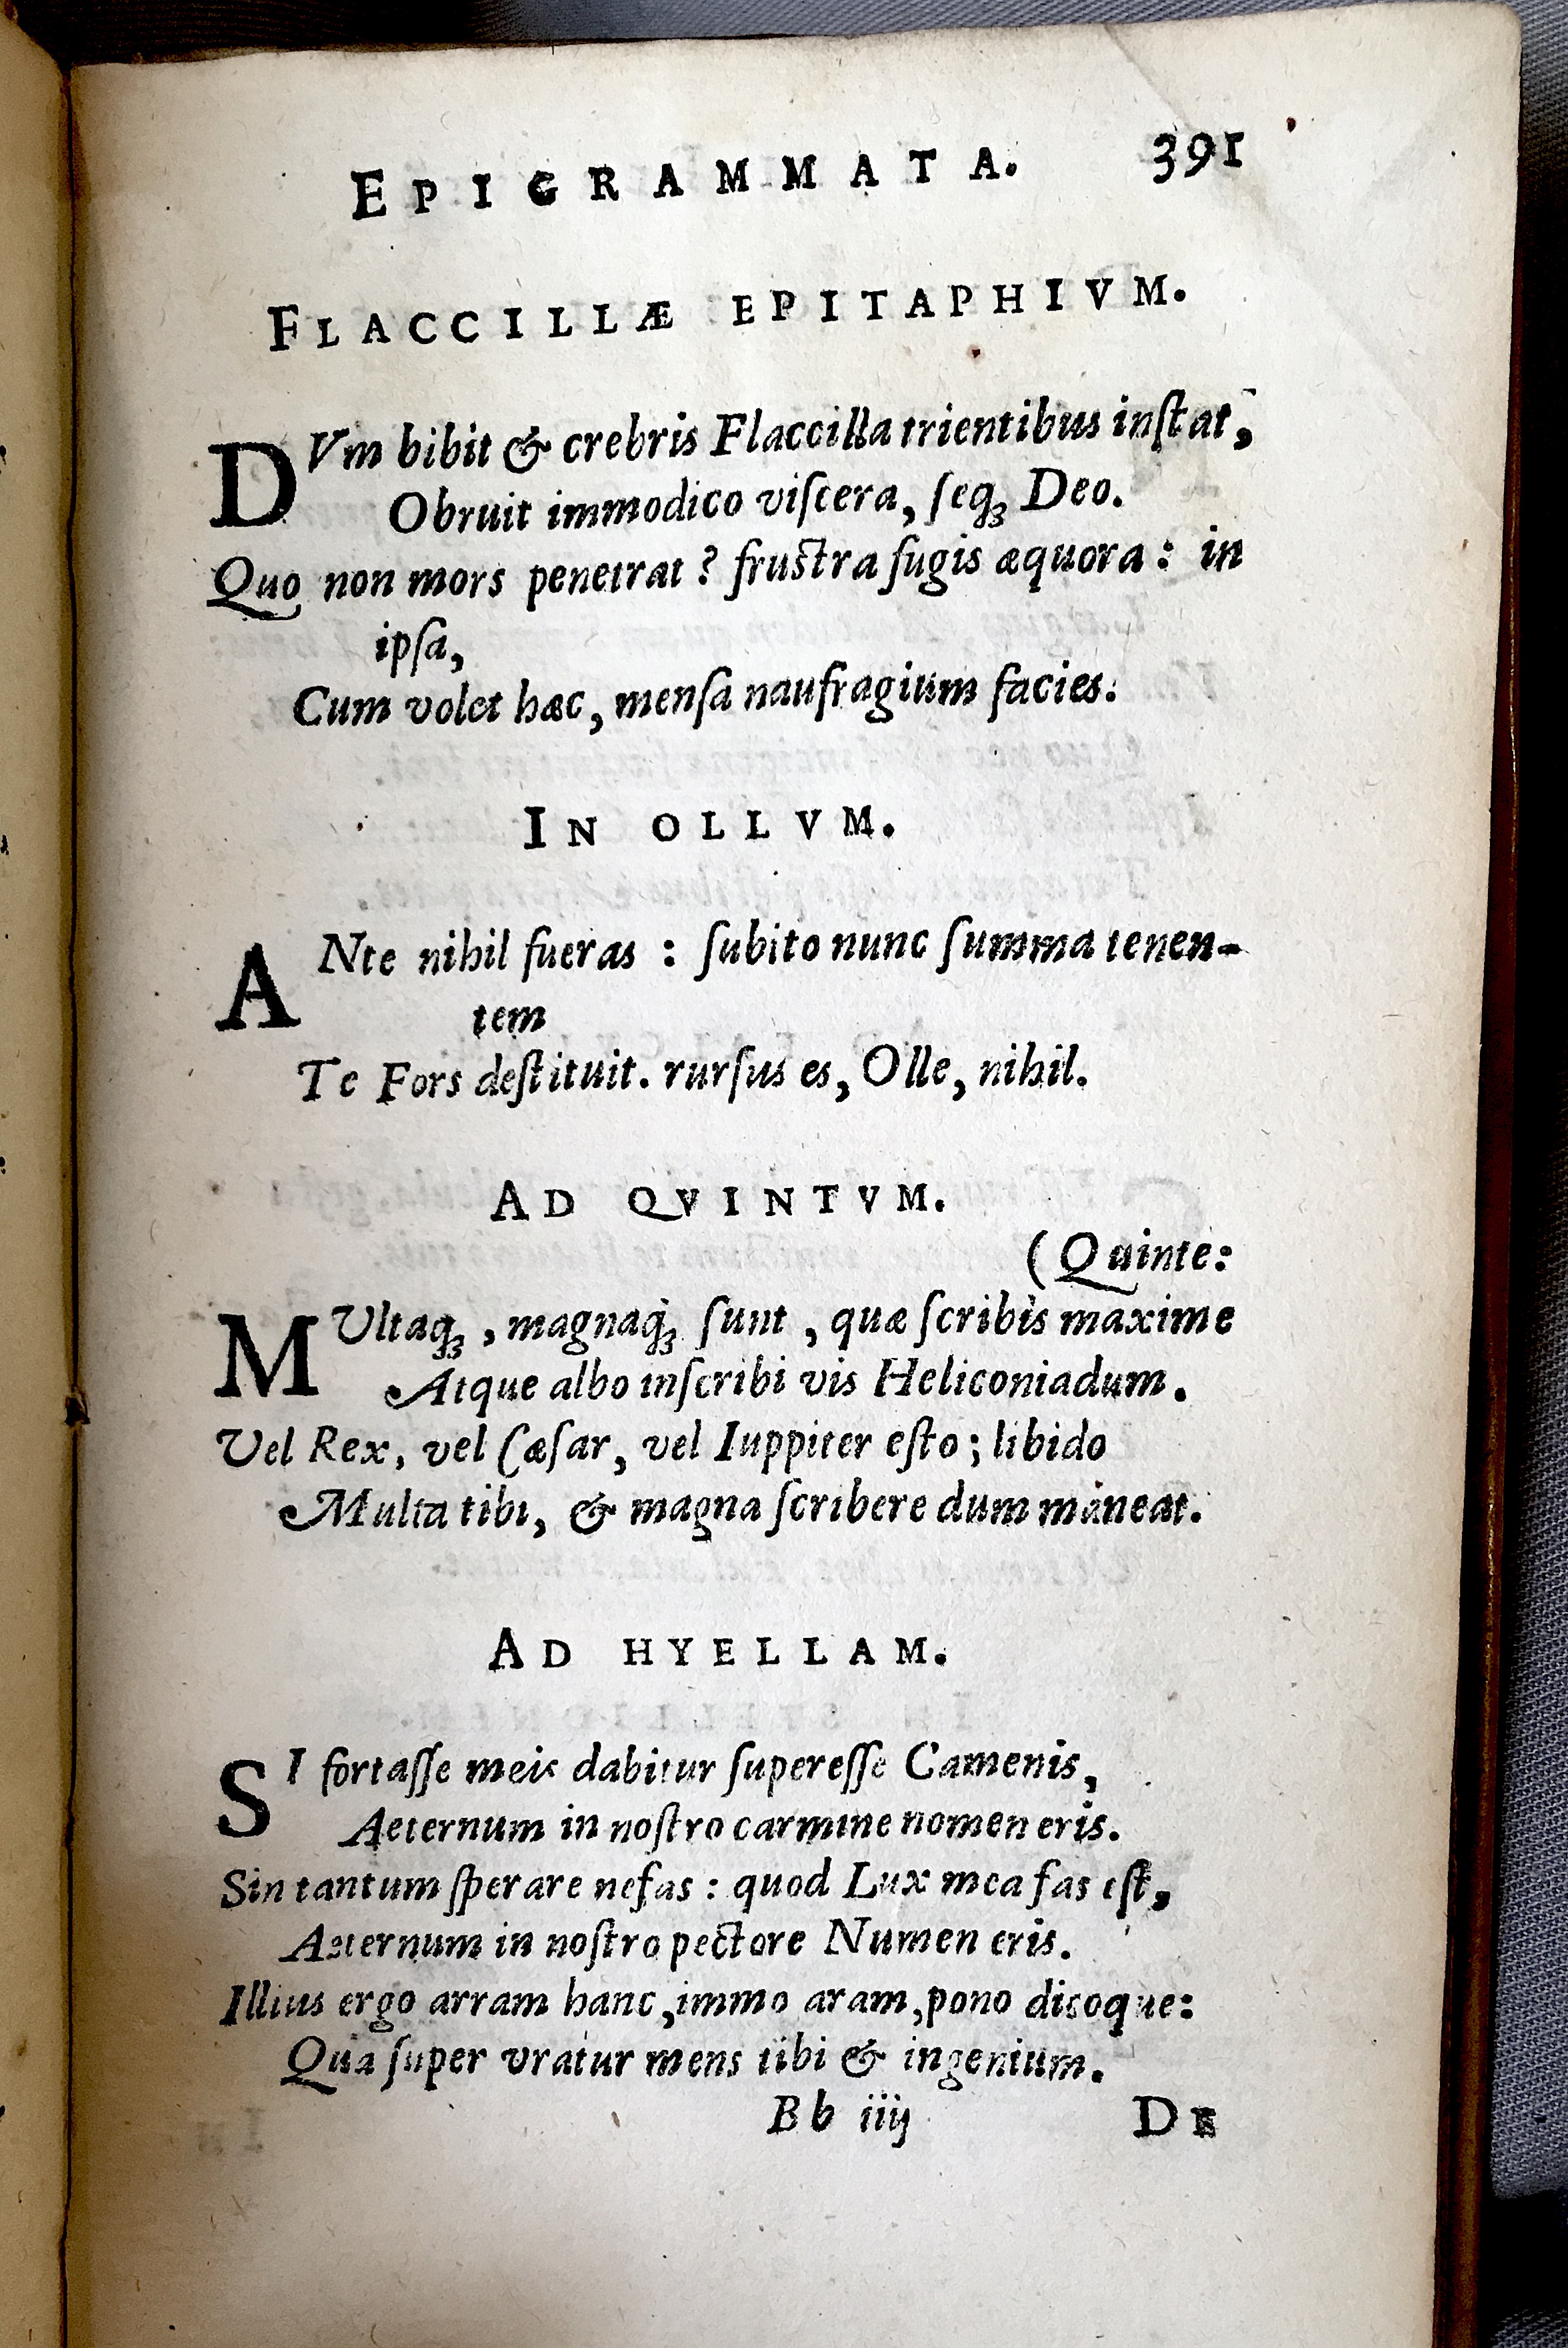 EPIGRAMMATA. 391
FLACCILLÆ EPITAPHIVM.
DVm bibit & crebris Flaccilla trientibus inſtat,
Obruit immodico viſcera, ſeq₃ Deo.
Quo non mors penetrat? fruſtra fugis æquora: in
ipſa,
Cum volet hæc, menſa naufragium facies.
IN OLLVM.
ANte nihil fueras : ſubito nunc ſumma tenen-
tem
Te Fors deſtituit. rurſus es, Olle, nihil.
AD QVINTVM.
(Quinte:
MUltaq́₃, magnaq́₃ ſunt, quæ ſcribis maxime
Atque albo inſcribi vis Heliconiadum.
Vel Rex, vel Cæſar, vel Iuppiter eſto; libido
Multa tibi, & magna ſcribere dum maneat.
AD HYELLAM.
SI fortaſſe meis dabitur ſupereſſe Camenis,
Aeternum in noſtro carmine nomen eris.
Sin tantum ſperare nefas : quod Lux mea fas eſt,
Aeternum in noſtro pectore Numen eris.
Illius ergo arram hanc, immo aram, pono dicoque:
Qua ſuper vratur mens tibi & ingenium.
Bb iiij DE